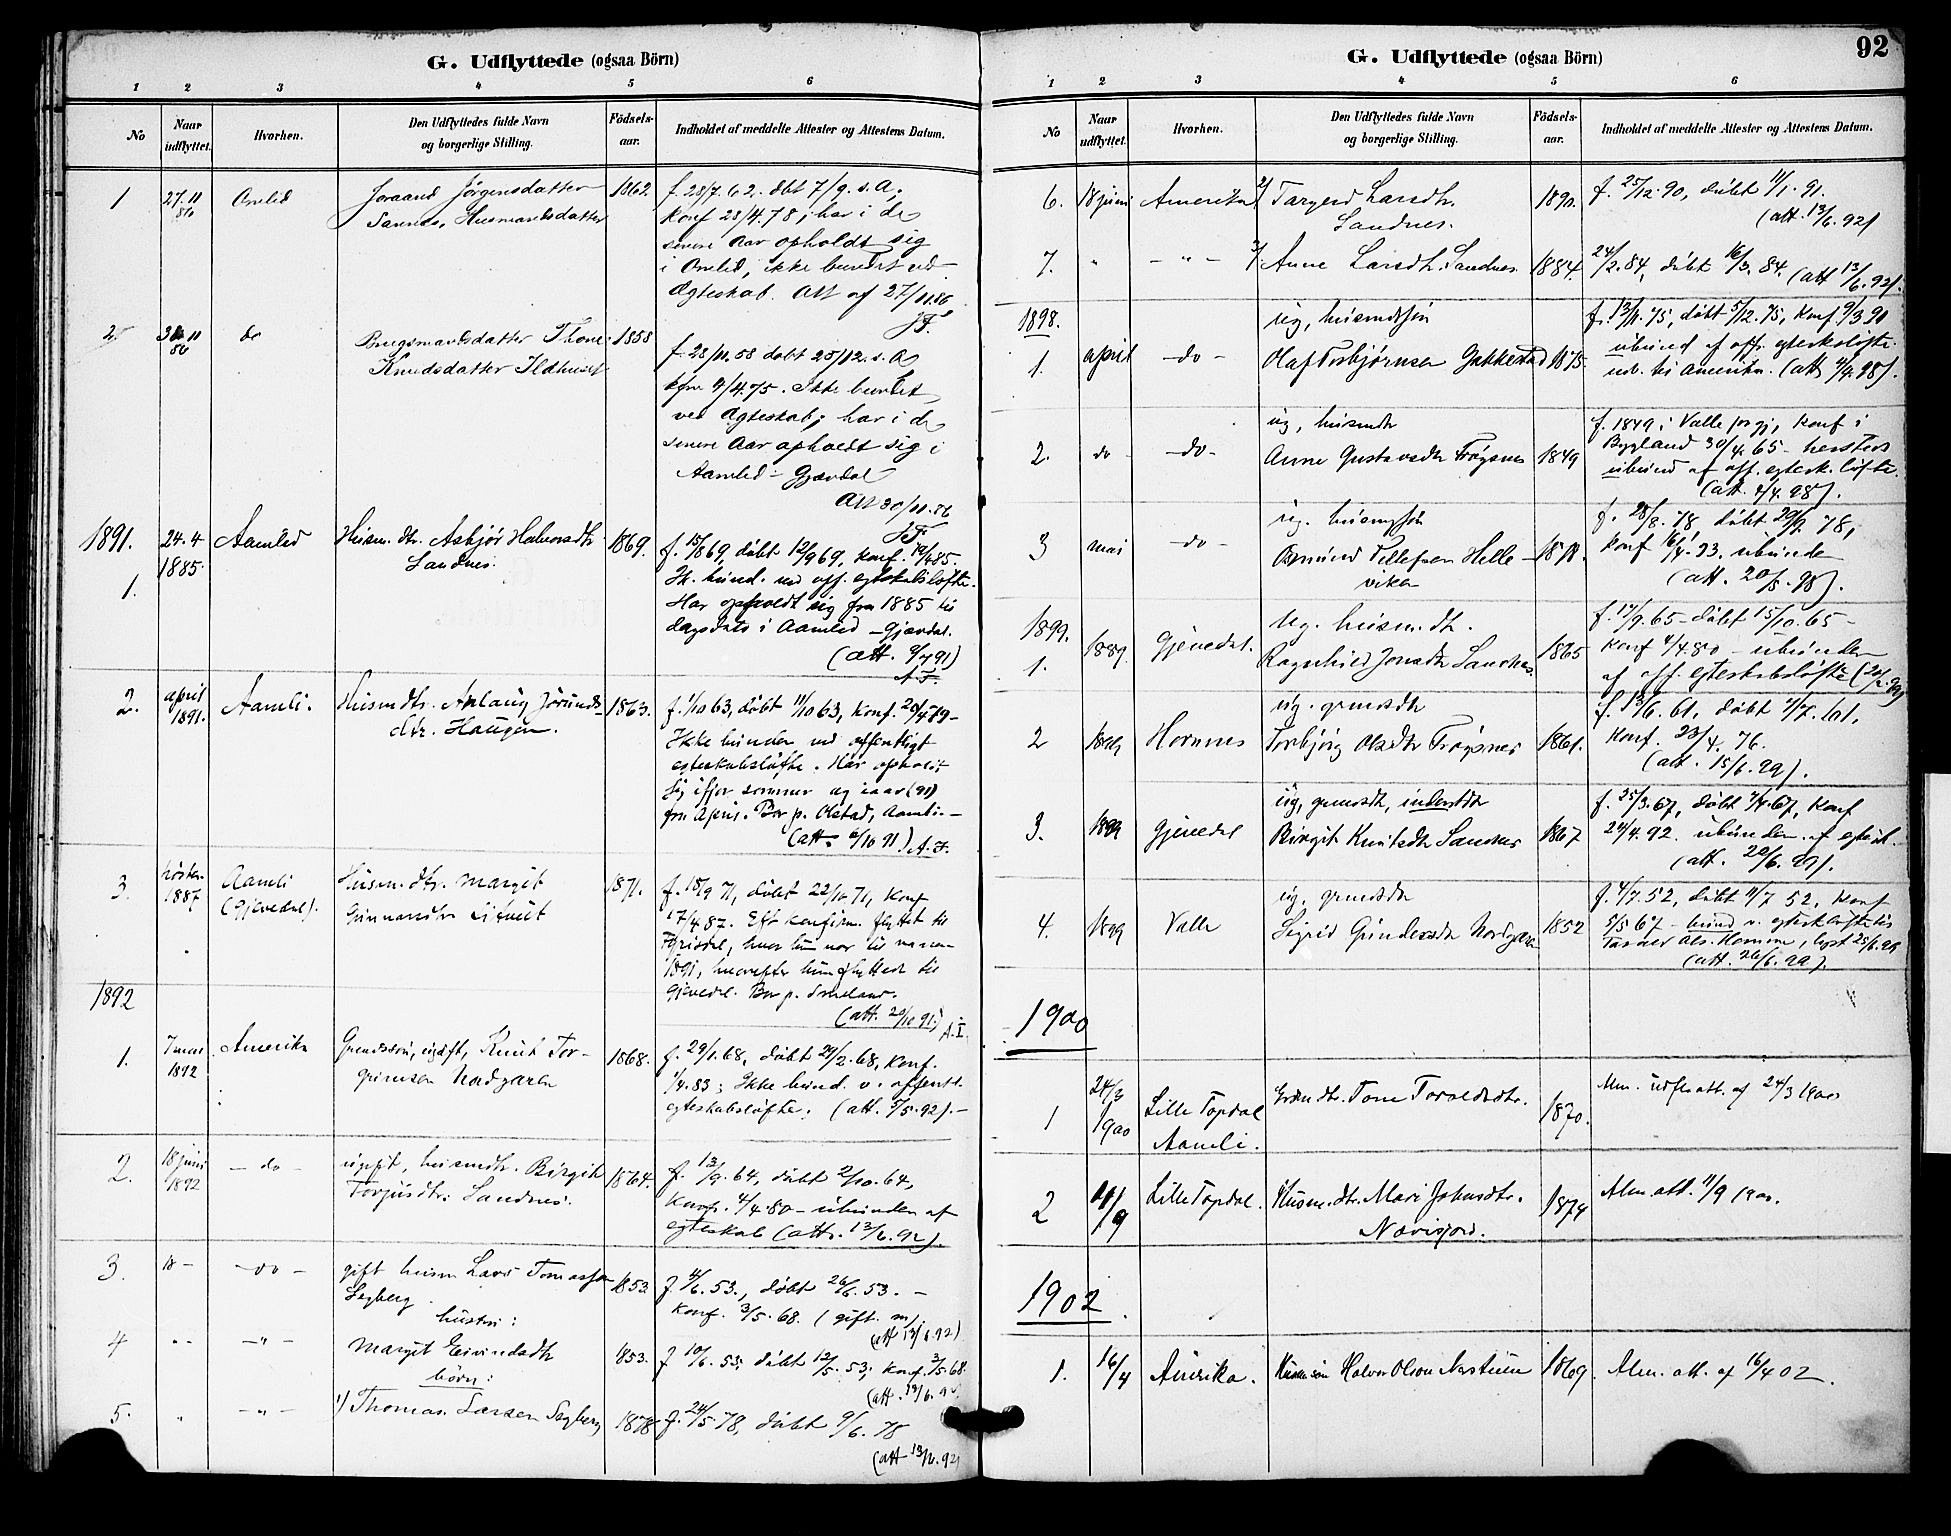 G. Udflyttede (ogsaa Börn)
1 2 3 4 5 6
No
Naar udflyttet.
Hvorhen.
Den Udflyttedes fulde Navn og borgerlige Stilling.
Födsels-aar.
Indholdet af meddelte Attester og Attestens Datum.
1 27.11 86 Omlid Joraand Jörgensdatter 1862. f. 28/7.62. dbt 7/9. s.A;
Sannes, Husmandsdatter konf 28/4.78; har i de
senere Aar opholdt sig
i Omlid, ikke bundet ved
Ægteskab. Att af 27/11.86
J.F.
2 30.11 86 do Brugsmandsdatter Thone 1858 f. 28/11.58 dobt 25/12. s. A
Knudsdatter Ildhuset konf 4/4.75. Ikke bundet
ved Ægteskab; har i de
senere Aar opholdt sig i
Aamlid - Gjævdal
Att 30/11.86
J.F.
1891.
1. 24.4 1885. Aamlid Husm. dtr. Asbjør Halvorsdtr. 1869. f. 15/8 69, døbt 12/9 69, konf. 19/4 85.
Sandnes. Ik. bund. ved off. egteskabsløfte.
Har opholdt sig fra 1885 til
dagsdato i Aamlid - Gjævdal.
(att. 9/7 91)
A.F.
2. april 1891. Aamli. Husmdtr. Aslaug Jørunds- 1863. f. 1/10 63, døbt 11/10 63, konf. 20/4 79-
dtr. Haugen. Ikke bunden ved offentligt
egteskabsløfte. Har opholdt
sig ifjor sommer og iaar (91)
fra April. Bor p. Olstad, Aamli.-
(att. 6/10 91) A.F.
3. høsten 1887 Aamli (Gjevedal). Husm. dtr. Margit 1871. f. 18/9 71, døbt 22/10 71, konf
Gunnarsdtr 17/4 87. Eft konfirm. flyttet til
Fyrisdal, hvor hun var til
1891, hvorefter hun flyttede til
Gjevedal. Bor p. Smeland.
(att. 20/10 91.)
1892
1. 7 mai 1892 Amerika Grundssøn, ugift, Knut Tor- 1868. f. 29/1.68, døbt 29/2.68, konf.
grimsen Nordgaren 1/4.83; Ikke bund. v. offentl.
egteskabsløfte. (att. 5/5.92).-
2. 18 juni 1892 - do - ugift, husmdtr. Birgit 1864. f. 13/9.64, døbt 2/10.64,
Torjusdtr. Sandnes. konf. 4/4.80 - ubunden af
egteskab (att. 13/6.92).
3. - do - gift husm Lars Tomassen 1853. f. 4/6.53., døbt 26/6.53.-
konf. 3/5.68. (gift. m.
(att 13/6.92)
hustru:
4 " - " - Margit Eivindsdtr 1853. f 10/6.53; døbt 12/5.53; konf. 3/5.68.
(att. 13/6.92)
børn:
5. " - " - 1) Thomas Larsen 1878 f. 24/5.78, døbt 9/6.78
(att 13/6.92)
92
G. Udflyttede (ogsaa Börn)
1 2 3 4 5 6
No
Naar udflyttet.
Hvorhen.
Den Udflyttedes fulde Navn og borgerlige Stilling.
Födsels-aar.
Indholdet af meddelte Attester og Attestens Datum.
6. 18 juni Amerika 2/ Targerd Larsdtr. 1890. f. 25/12.90, døbt 11/1.91.
Sandnes. (att. 13/6.92)
7. " - " - 3/ Anne Larsdtr. Sandnes. 1884. 24/2.84, døbt 16/3.84. (att 13/6.92).
1898. ug, husmdssøn f. 13/11.75, døbt 5/12.75, konf. 9/3 90
1. april - do - Olaf Torbjørnsen 1875. ubund af off. egteskløfte.
udv. til Amerika. (att 4/4.98).
ug, husmdtr f. 1849 i Valle prgj, konf i
2. do - do - Anne Gustavsdtr Frøysnes 1849 Bygland 30/4.65 - hersteds
ubund af off. egtesk. løfte.
(att. 4/4.98).
ug. husmdssøn f. 28/8.78, døbt 29/9.78,
3 mai - do - Tellefsen Helle- 1878. konf 16/4.93. ubunden
viken (att. 20/5.98).
1899. ug. husm.dtr. f. 17/9.65 - døbt 15/10.65 -
1. 1889. Gjevedal. Ragnhild Jonsdtr Sandnes. 1865 konf 4/4.80 - ubunden
af off. egteskabsløfte
ug. grmdsdtr f. 13/6.61, døbt 7/7.61,
2 1899 Hornnes Torbjørg Olsdtr Frøysnes 1861. konf. 23/4.76.
(att. 15/6.99).
ug, grmdsdtr, inderstdtr f. 25/3.67, døbt 7/4.67, konf
3. 1899 Gjevedal Birgit Knutsdtr Sandnes 1867 24/4.92. ubunden af egtesk.
(att. 20/6.99).
ug. grmdsdtr f. 4/7.52, døbt 11/7 52, konf
4. 1899 Valle Sigrid Gundersdtr Nordgaren 1852 5/5 67 - bund v. egteskløfte til
Als. Homme, lyst 25/6.99
(att. 26/6.99).
1900
1 24/3 1900 Lille Topdal Aamli. Grdmdtr. Tone Toraldsdtr. 1870. Alm. udfl.att. af 24/3 1900
2 11/9 Lille Topdal. Husm.dtr. Mari Johnsdtr. 1874 Alm. att. 11/9 1900.
Nævisjord.
1902
1. 16/4 Amerika. Husm.søn Halvor Olson 1869 Alm. att. af 16/4 02.